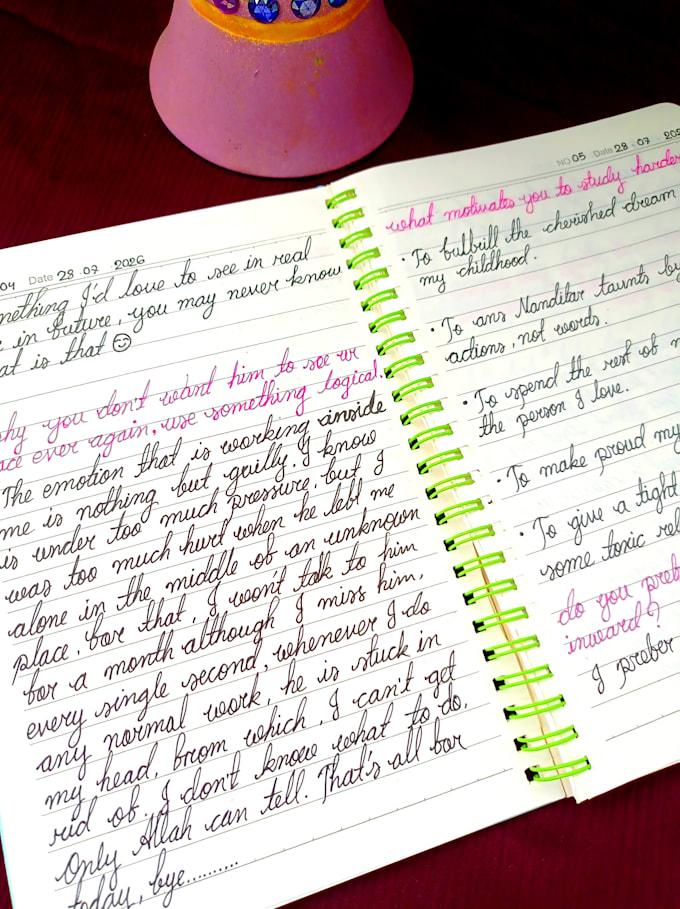 04 Date 28 . 07 . 2026
mething I'd love to see in real
e in future, you may never know
at is that ☺
hy you don't want him to see ur
ace ever again, use something logical.
The emotion that is working inside
me is nothing but guilty. I know
is under too much pressure, but I
was too much hurt when he left me
alone in the middle of an unknown
place, for that, I won't talk to him
for a month although I miss him,
every single second, whenever I do
any normal work, he is stuck in
my head, from which, I can't get
rid of. I don't know what to do,
Only Allah can tell. That's all for
today, bye..........
NO 05 Date 28 . 07 . 202
what motivates you to study harder
• To fulfill the cherished dream
my childhood.
• To ans Nanditar taunts by
actions, not words.
• To spend the rest of m
the person I love.
• To make proud my
• To give a tight
some toxic rel
do you pref
inward?
I prefer